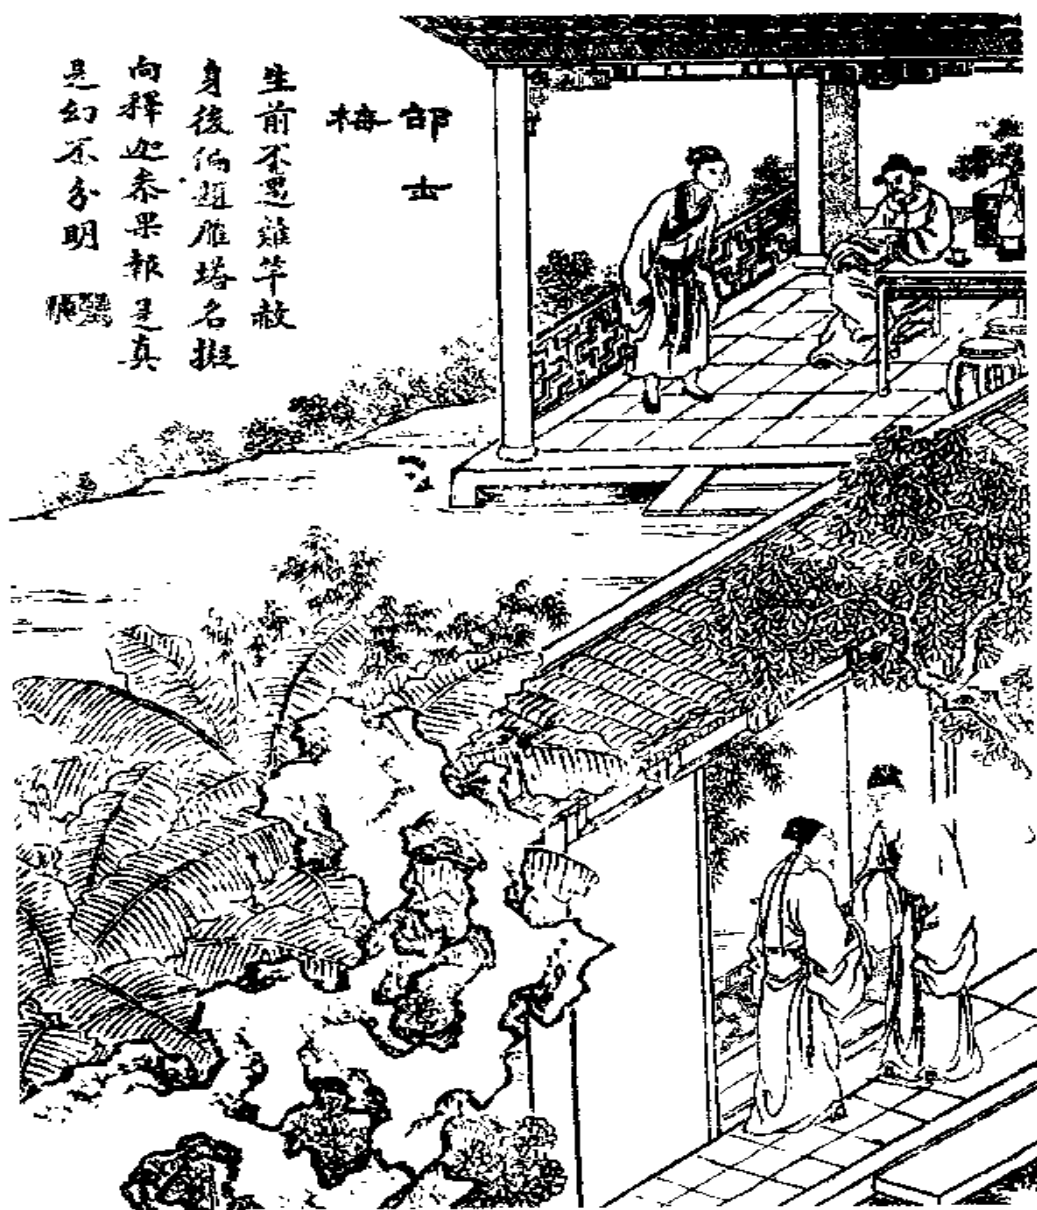 邵士
梅
生前不遇雞竿赦
身後仍題雁塔名擬
向釋迦參果報是真
是幻不分明